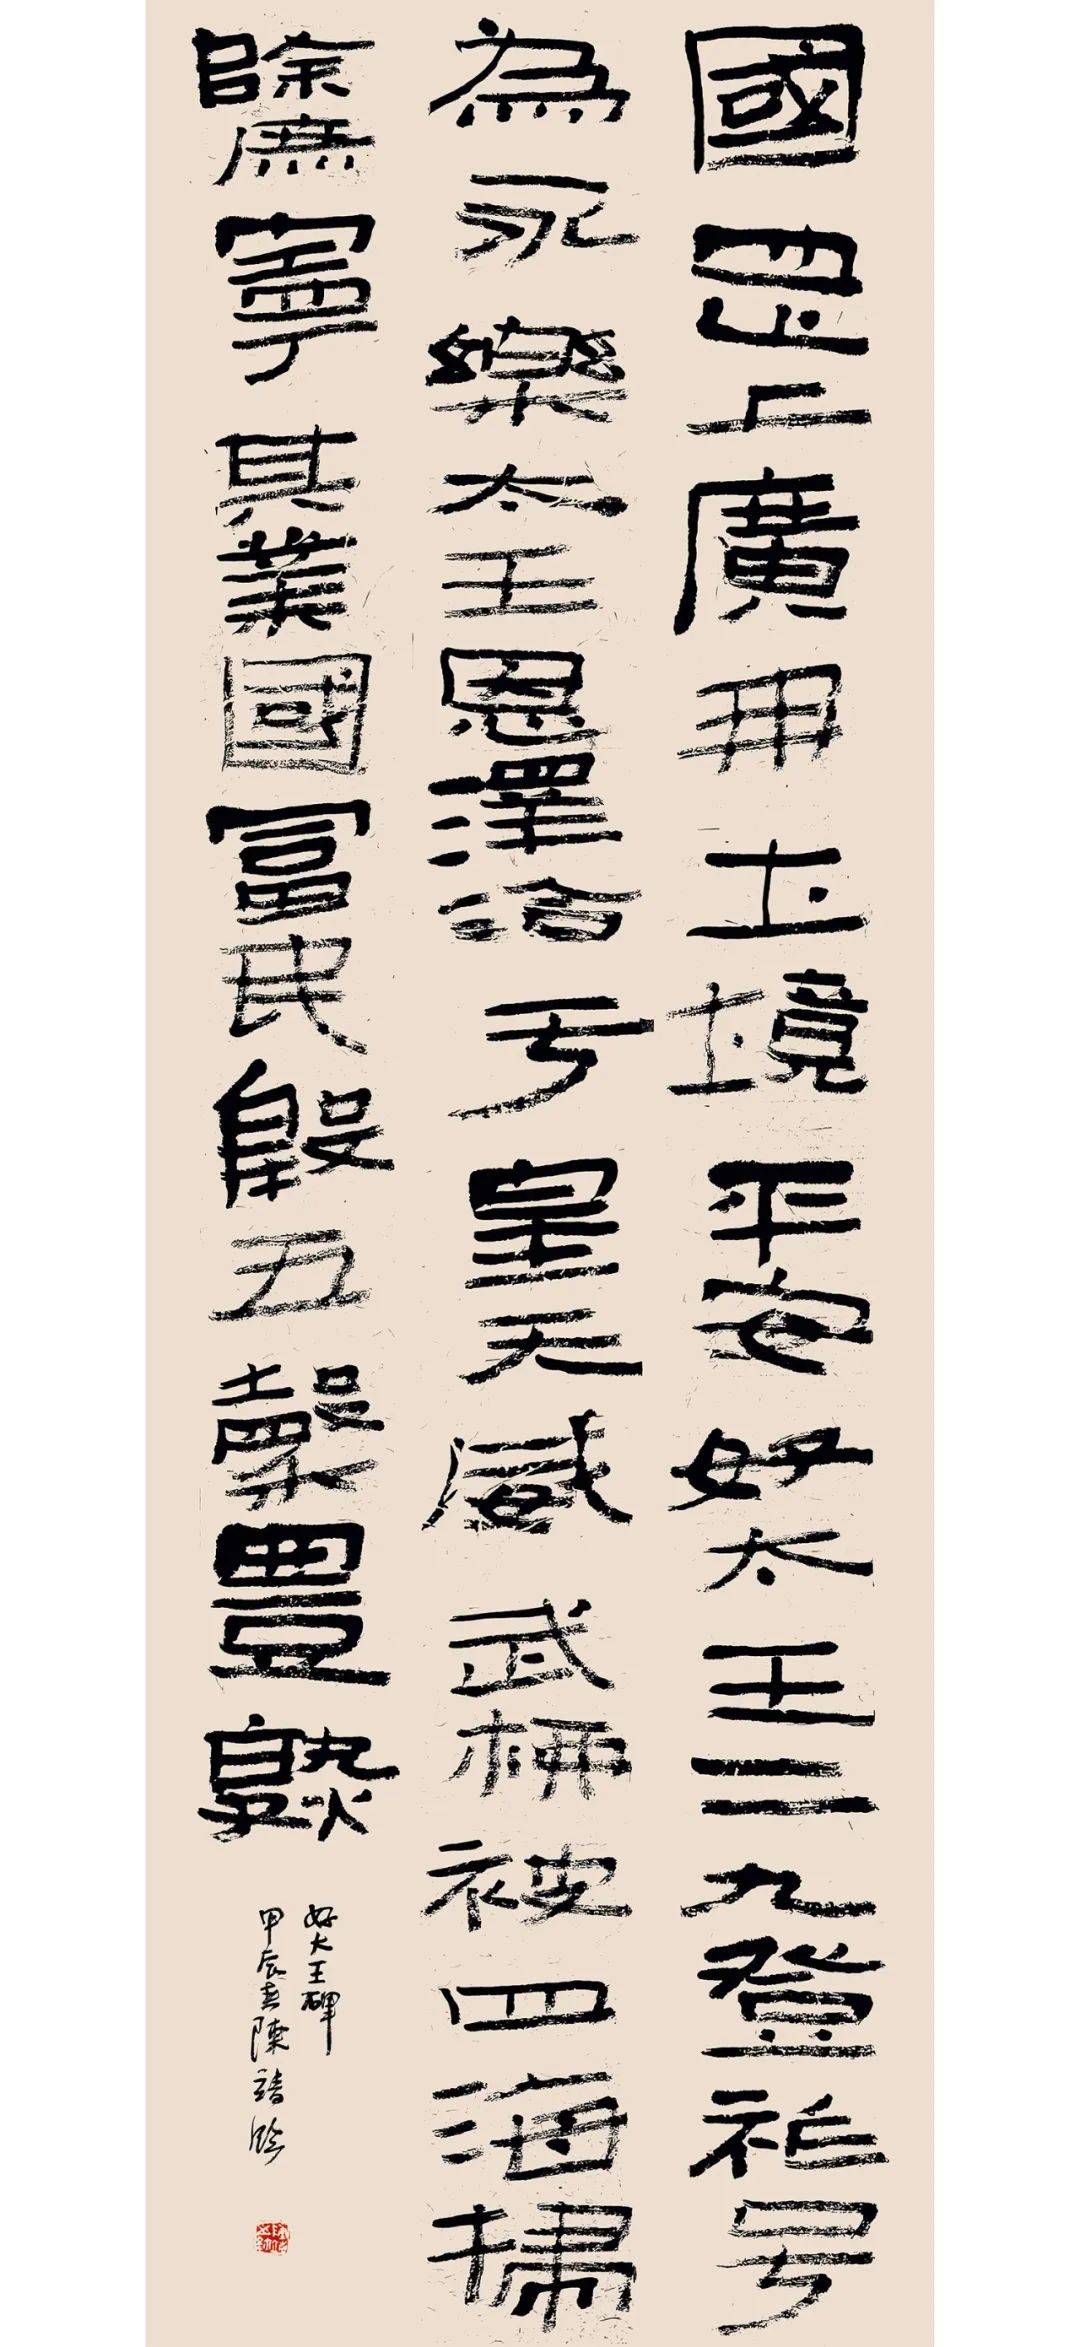 國罡上廣开土境平安好太王二九登祚号
為永樂太王恩澤洽于皇天威武被四海掃
除庶寧其業國富民殷五穀豊熟
好大王碑
甲辰春陳靖臨